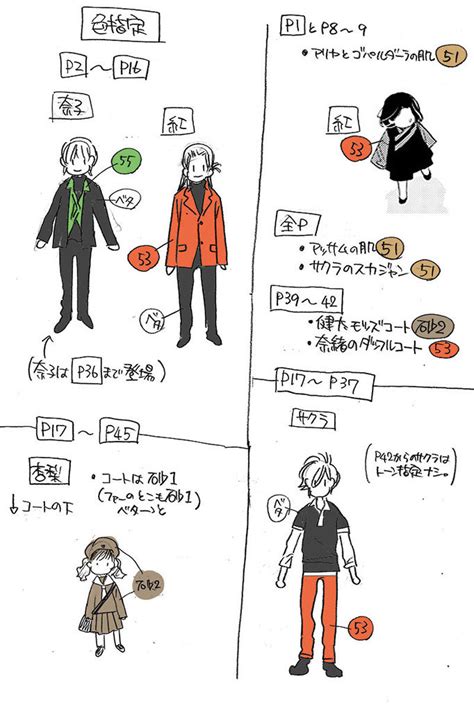 色指定
P2～P16
奈子
紅
55
ベタ
53
ベタ
(奈子はP36まで登場)
P17～P45
杏梨
・コートは石b1
(ファーのとこも石b1)
ベターっと
↓コートの下
石b2
P1とP8～9
・アリヤとゴパルダーラの肌 51
紅
53
全P
・アッサムの肌 51
・サクラのスカジャン 51
P39～42
・健太モッズコート 石b2
・奈緒のダッフルコート 53
P17～P37
サクラ
(P42からのサクラは
トーン指定ナシ。)
ベタ
53